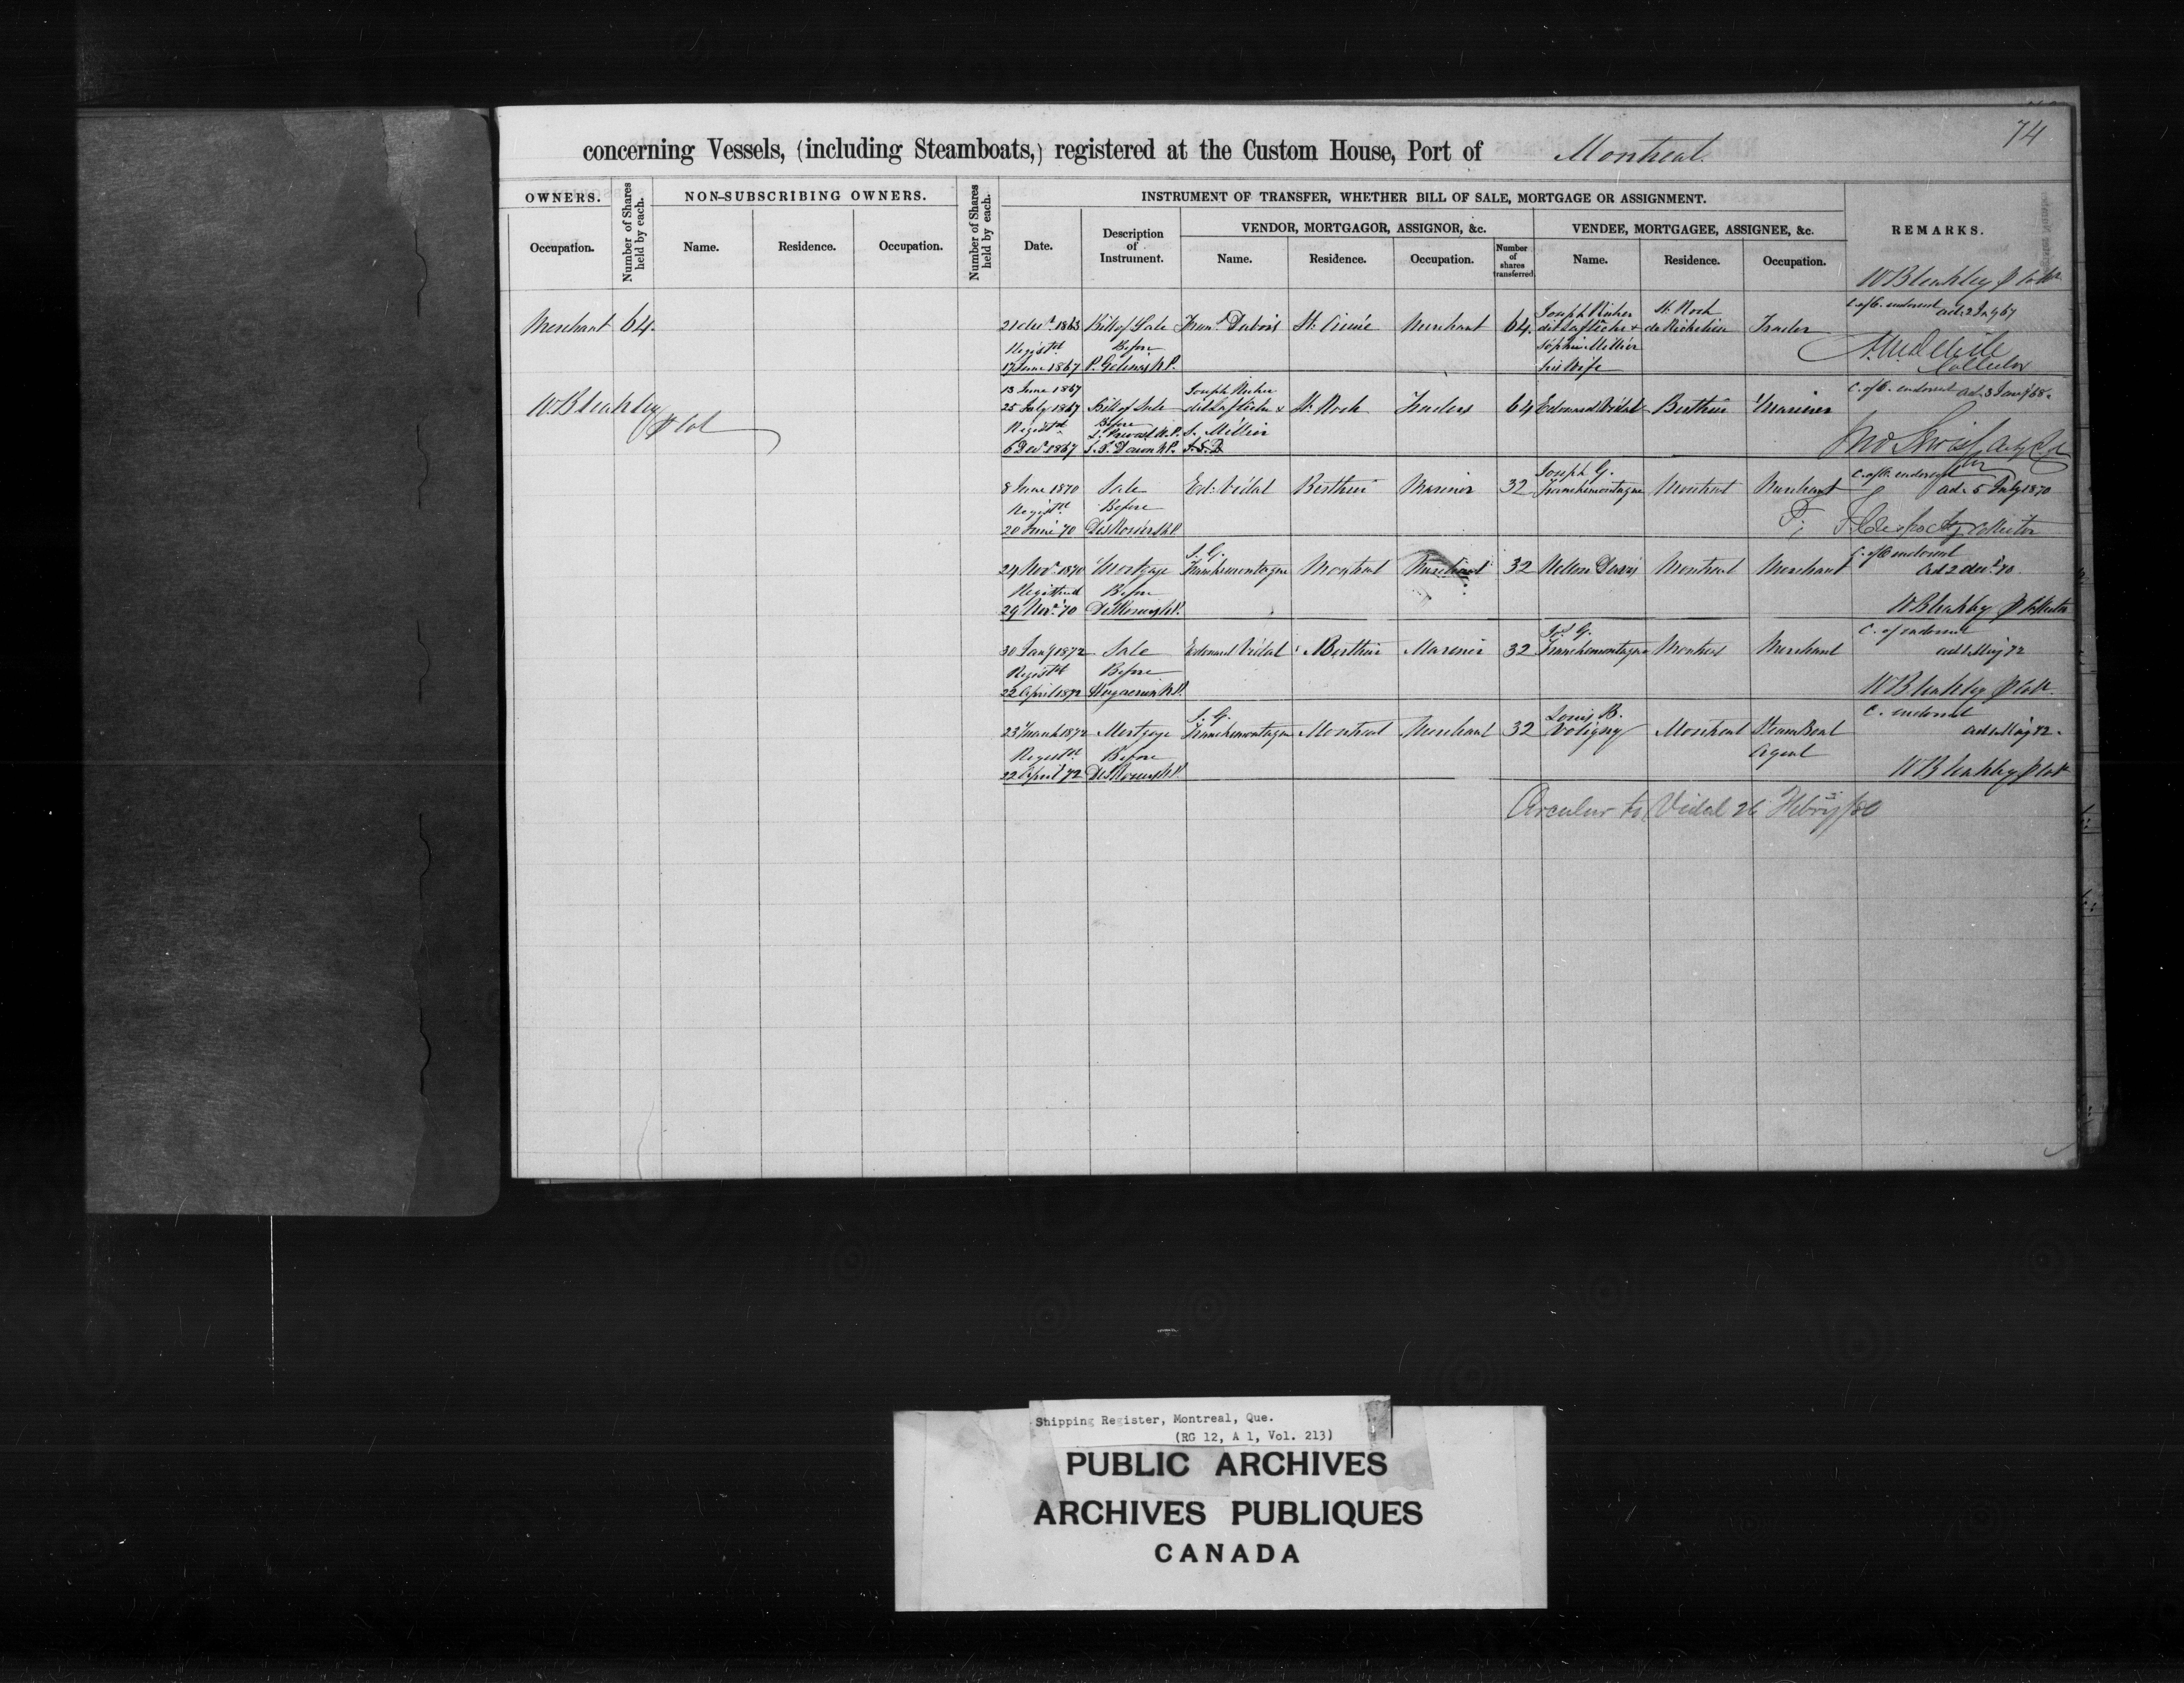 74
concerning Vessels, (including Steamboats,) registered at the Custom House, Port of Montreal.
OWNERS.
Number of Shares held by each.
NON-SUBSCRIBING OWNERS.
Number of Shares held by each.
INSTRUMENT OF TRANSFER, WHETHER BILL OF SALE, MORTGAGE OR ASSIGNMENT.
REMARKS.
VENDOR, MORTGAGOR, ASSIGNOR, &c.
VENDEE, MORTGAGEE, ASSIGNEE, &c.
Occupation.
Name.
Residence.
Occupation.
Date.
Description of Instrument.
Name.
Residence.
Occupation.
Number of shares transferred
Name.
Residence.
Occupation.
W Bleakley
Joseph Richer St. Roch C. of C. endorsed
Merchant 64 21 Decr 1863 Bill of Sale Dubois St. Merchant 64 dit Lafleche & de Richelieu Trader
Registd Before Sophie Millier
17 June 1867 P. Gelinas N.P. his Wife Collector
13 June 1867 Joseph Richer C. of C. endorsed
W Bleakley 25 July 1867 Bill of Sale dit Lafleche & St. Roch Traders 64 Edouard Vidal Berthier Mariner
Registd Before S. Millier
6 Decr 1867
Joseph G. C. of C. endorsed
8 June 1870 Sale Ed: Vidal Berthier Mariner 32 Franchemontagne Montreal Merchant ad. 5 July 1870
Registd Before
20 June 70 N.P. Collector
J. G. C. of C. endorsed
24 Novr 1870 Mortgage Franchemontagne Montreal Merchant 32 Nelson Davis Montreal Merchant ad 2 Decr 70
Registered Before
29 Novr 70 N.P. W Bleakley
Jos. G. C. of endorsed
30 Jany 1872 Sale Edouard Vidal Berthier Mariner 32 Franchemontagne Montreal Merchant May 72
Registd Before
22 April 1872 N.P. W Bleakley
J. G. Louis B. C. endorsed
23 March 1872 Mortgage Franchemontagne Montreal Merchant 32 Voligny Montreal Steam Boat May 72
Registd Before Agent
22 April 72 N.P. W Bleakley
Circular to Vidal 26 Febry /80
Shipping Register, Montreal, Que.
(RG 12, A 1, Vol. 213)
PUBLIC ARCHIVES
ARCHIVES PUBLIQUES
CANADA